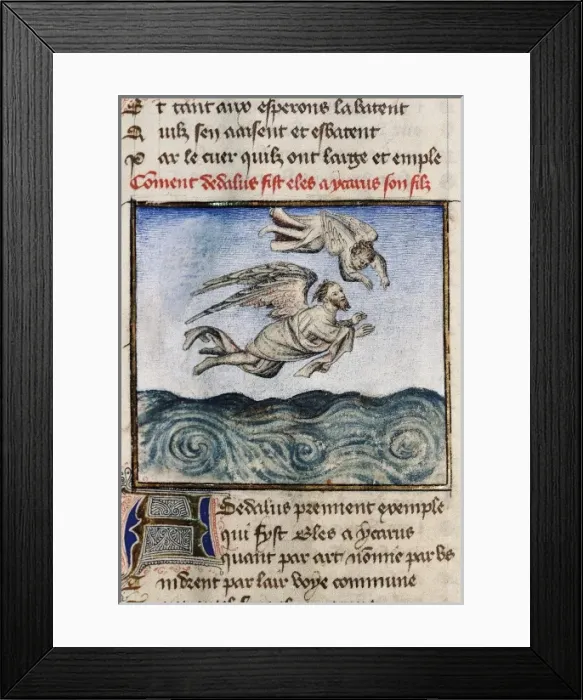 Et tant aux esperons la batent
Quilz sen aaisent et esbatent
Par le cuer quilz ont large et emple
Coment dedalus fist eles a ycarus son filz
A Dedalus prennent exemple
qui fyst Eles a ycarus
quant par art
par lair voye commune